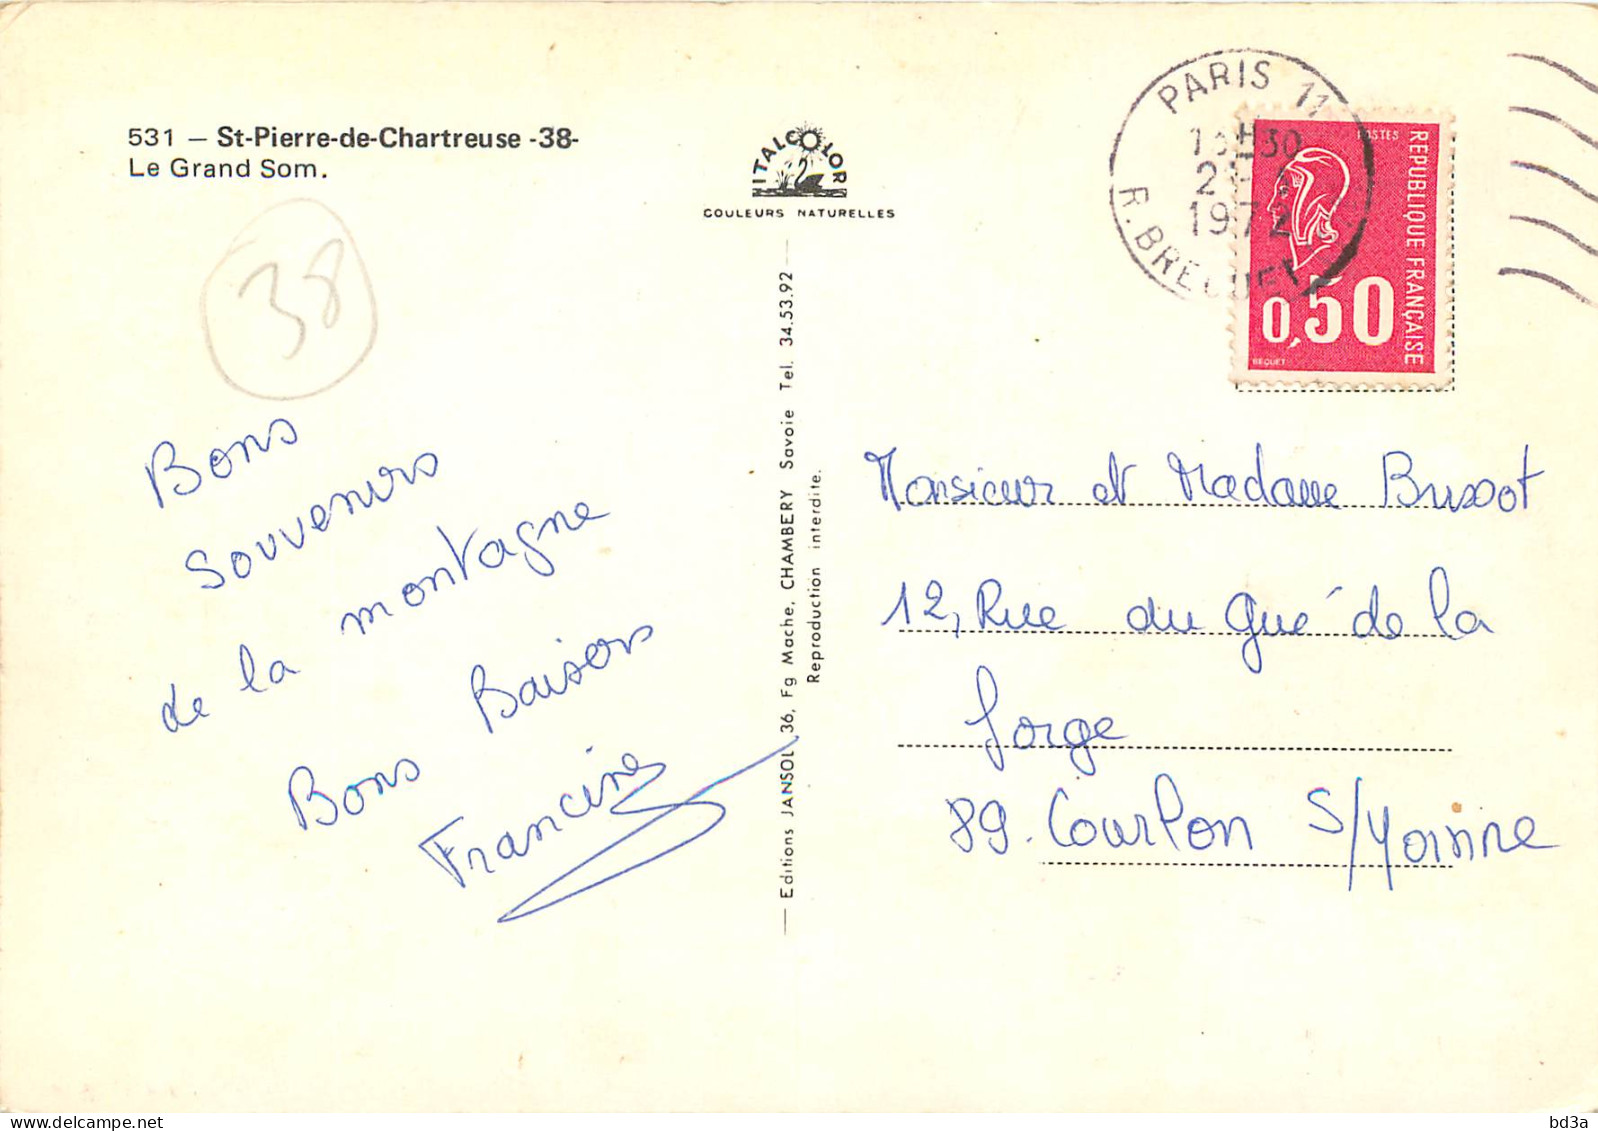 531 — St-Pierre-de-Chartreuse -38-
Le Grand Som.
38
Bons
souvenirs
de la montagne
Bons Baisers
Francine
ITALCOLOR
COULEURS NATURELLES
Editions JANSOL 36, Fg Mache, CHAMBERY Savoie Tel. 34.53.92
Reproduction interdite.
PARIS 11
1972
R. BREGUET
POSTES
REPUBLIQUE FRANÇAISE
0,50
BEQUET
Monsieur et Madame
12, Rue du Gué de la
forge
89. Courlon S/Yonne
bd3a